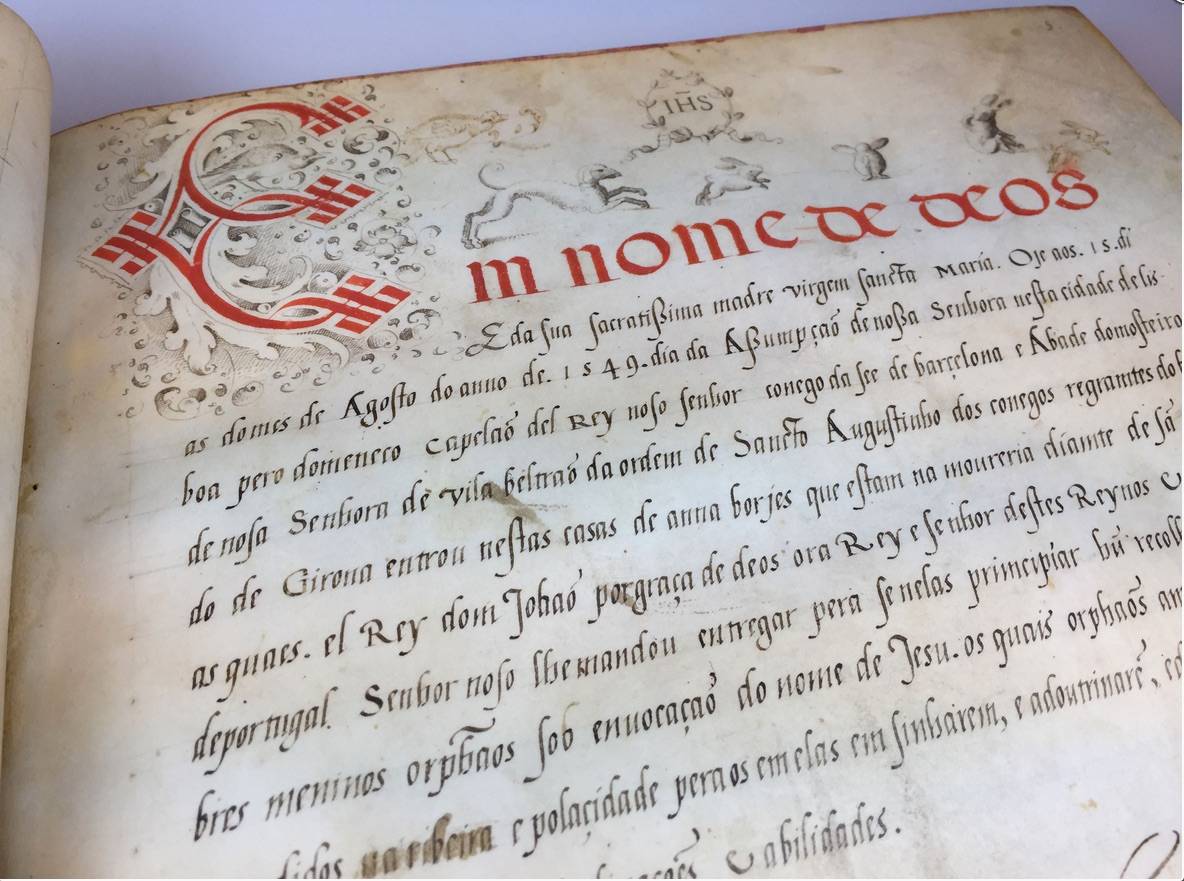 IHS
Em nome de deos
E da sua sacratißima madre virgem sancta Maria. Oje aos. 15. di
as do mes de Agosto do anno de. 1549. dia da Aßumpção de noßa Senhora nesta cidade de lis
boa pero domeneco capelaõ del Rey noso senhor conego da see de barçelona e Abade do mosteiro
de nosa Senhora de vila beltraõ da ordem de Sancto Augustinho dos conegos regrantes do
do de Girona entrou nestas casas de anna borjes que estam na moureria diamte de sã
as quaes. el Rey dom Johaõ por graça de deos ora Rey e senhor destes Reynos
de portugal Senhor noso lhe mandou entregar pera se nelas principiar hũ recolh
bres meninos orphãos sob envocaçaõ do nome de Jesu. os quais orphaõs an
didos na ribeira e pola çidade pera os em elas emsinharem, e adoutrinarẽ,
abilidades.